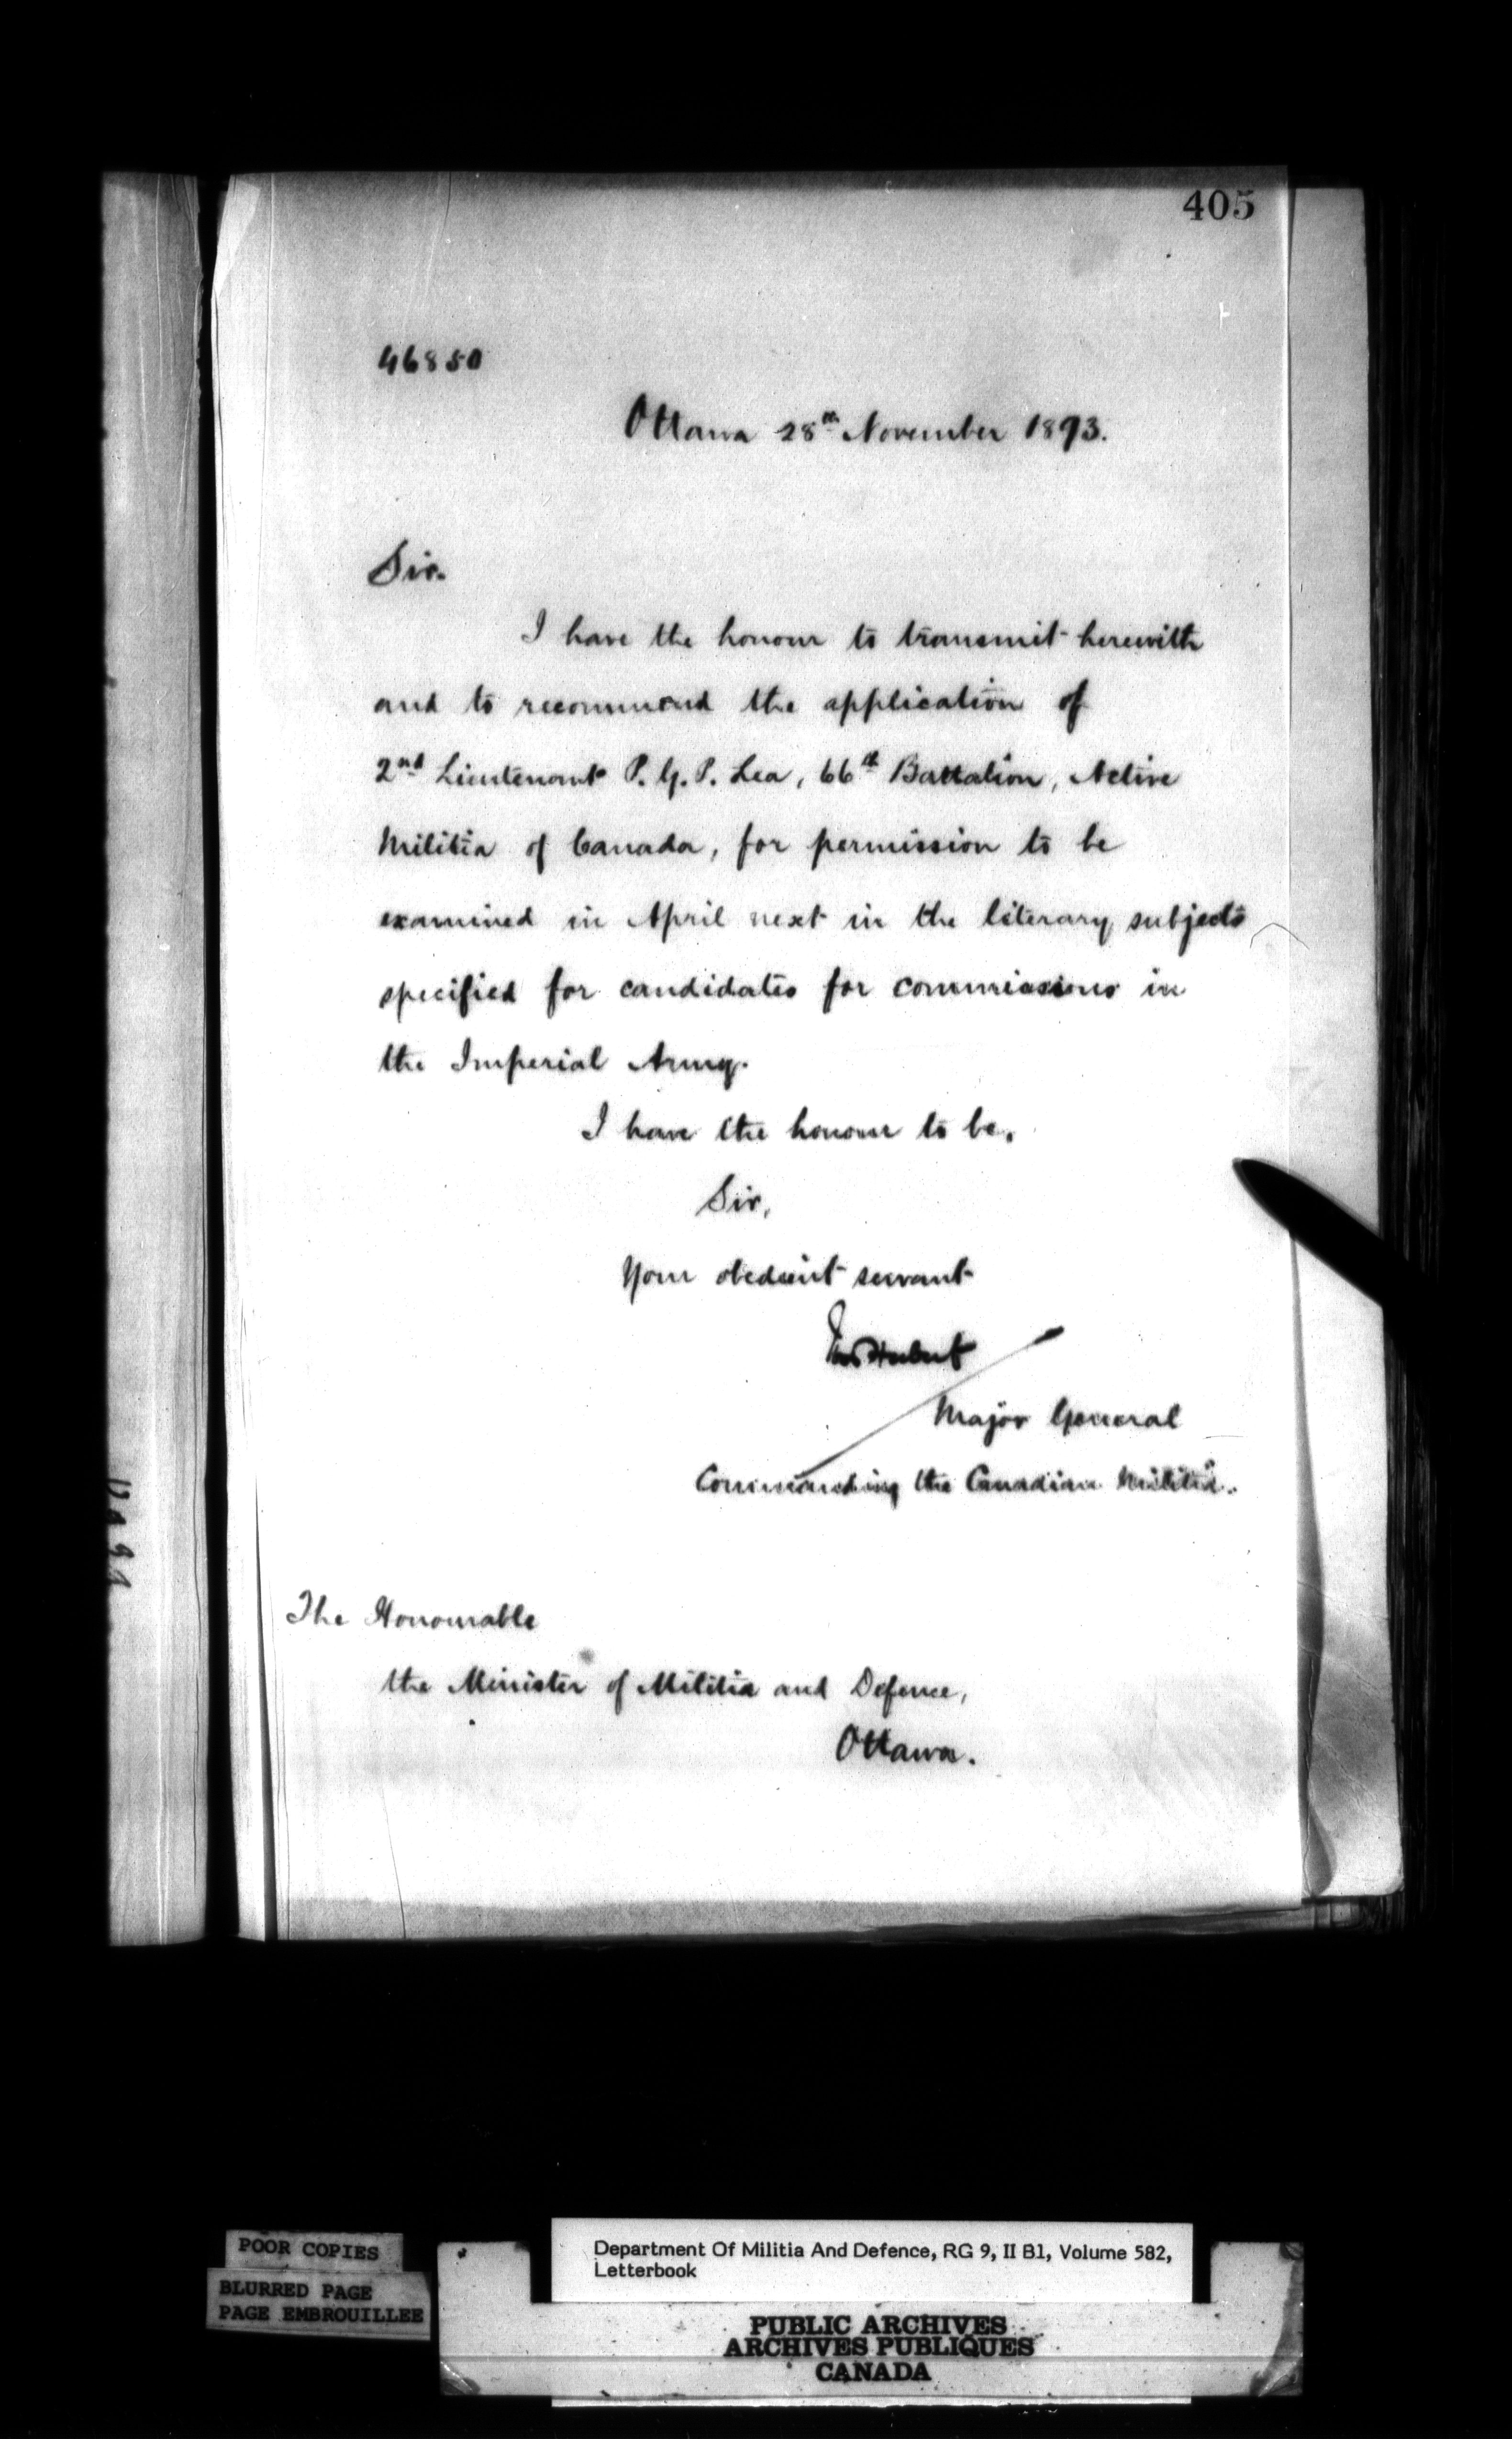 405
46850
Ottawa 28th November 1893.
Sir.
I have the honour to transmit herewith
and to recommend the application of
2nd Lieutenant P. G. P. Lea, 66th Battalion, Active
Militia of Canada, for permission to be
examined in April next in the literary subjects
specified for candidates for commissions in
the Imperial Army.
I have the honour to be,
Sir,
Your obedient servant
Herbert
Major General
Commanding the Canadian Militia.
The Honourable
the Minister of Militia and Defence,
Ottawa.
POOR COPIES
BLURRED PAGE
PAGE EMBROUILLEE
Department Of Militia And Defence, RG 9, II B1, Volume 582,
Letterbook
PUBLIC ARCHIVES
ARCHIVES PUBLIQUES
CANADA